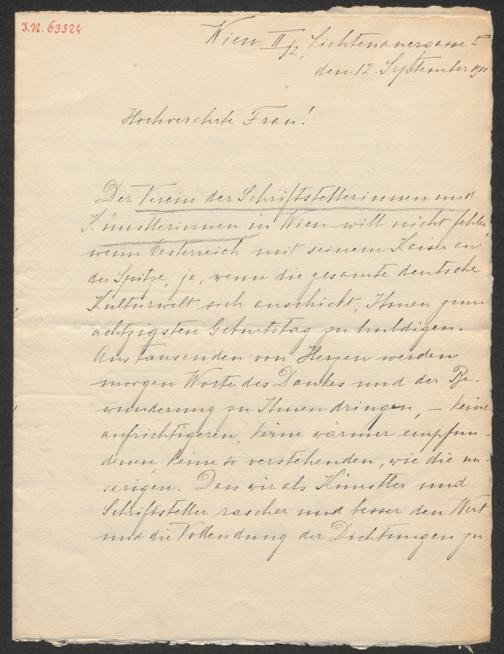 J.N. 63324
Wien II/2, Lichtenauergasse 5
den 12. September 1910
Hochverehrte Frau!
Der Verein der Schriftstellerinnen und
Künstlerinnen in Wien will nicht fehlen
wenn Oesterreich mit seinem Kaiser an
der Spitze, ja, wenn die gesamte deutsche
Kulturwelt sich anschickt, Ihnen zum
achtzigsten Geburtstag zu huldigen.
Aus tausenden von Herzen werden
morgen Worte des Dankes und der Be-
wunderung zu Ihnen dringen, – keine
aufrichtigeren, keine wärmer empfun-
denen, keine so verstehenden, wie die un-
serigen. Denn wir als Künstler und
Schriftsteller rascher und besser den Wert
und die Vollendung der Dichtungen zu